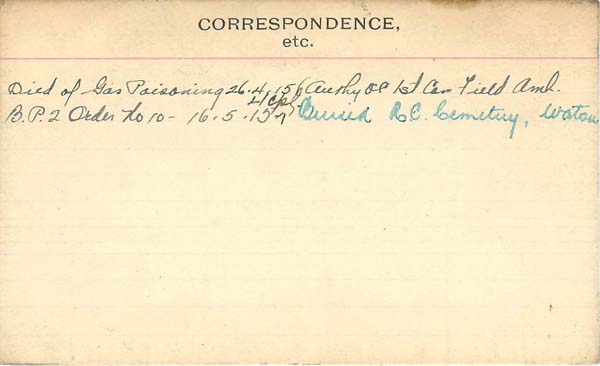 CORRESPONDENCE,
etc.
Died of Gas Poisoning 26.4.15 (Authy OC 1st Can Field Amb.
B.P.2 Order No 10 - 16.5.15) Buried R.C. Cemetery, Watou